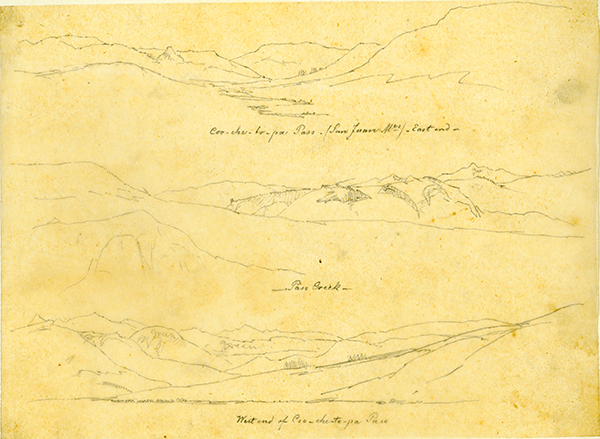 Coo-che-to-pa Pass - (San Juan Mts) - East end -
- Pass Creek -
green
West end of Coo-che-to-pa Pass